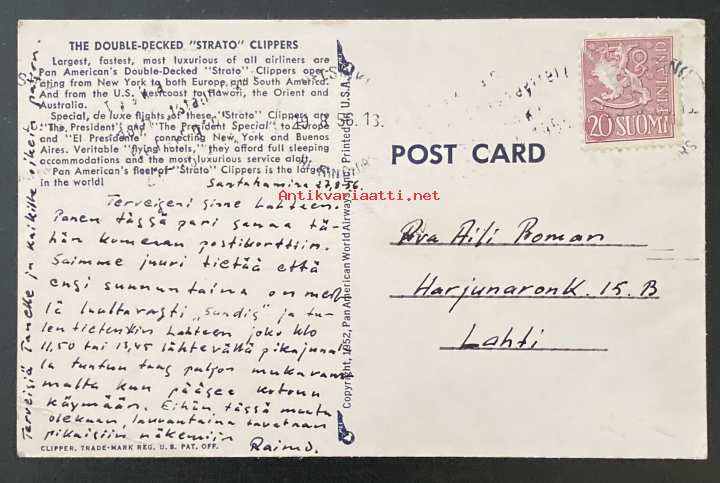 THE DOUBLE-DECKED "STRATO" CLIPPERS
Largest, fastest, most luxurious of all airliners are
Pan American's Double-Decked "Strato" Clippers oper-
ating from New York to both Europe and South America.
And from the U.S. Westcoast to Hawaii, the Orient and
Australia.
Special, de luxe flights of these "Strato" Clippers are
"The President" and "The President Special" to Europe
and "El Presidente" connecting New York and Buenos
Aires. Veritable "flying hotels," they afford full sleeping
accommodations and the most luxurious service aloft.
Pan American's fleet of "Strato" Clippers is the largest
in the world!
Santahamina 27.8-56.
Terveiseni sinne Lahteen.
Panen tässä pari sanaa tä-
hän komeaan postikorttiin.
Saimme juuri tietää että
ensi sunnuntaina on meil-
lä luultavasti "sundis" ja tu-
len tietenkin Lahteen joko klo
11,50 tai 13,45 lähtevällä pikajunal-
la tuntuu taas paljon mukavam-
malta kun pääsee kotona
käymään. Eihän tässä muuta
olekaan, lauantaina tavataan
pikaisiin näkemiin
Raimo.
Terveisiä Tanelle ja kaikille oikein paljon.
CLIPPER, TRADE-MARK REG. U.S. PAT. OFF.
Copyright, 1952, Pan American World Airways, Inc. Printed in U.S.A.
Antikvariaatti.net
56.18
POST CARD
20 SUOMI
FINLAND
Rva Aili Roman
Harjunaronk. 15. B
Lahti